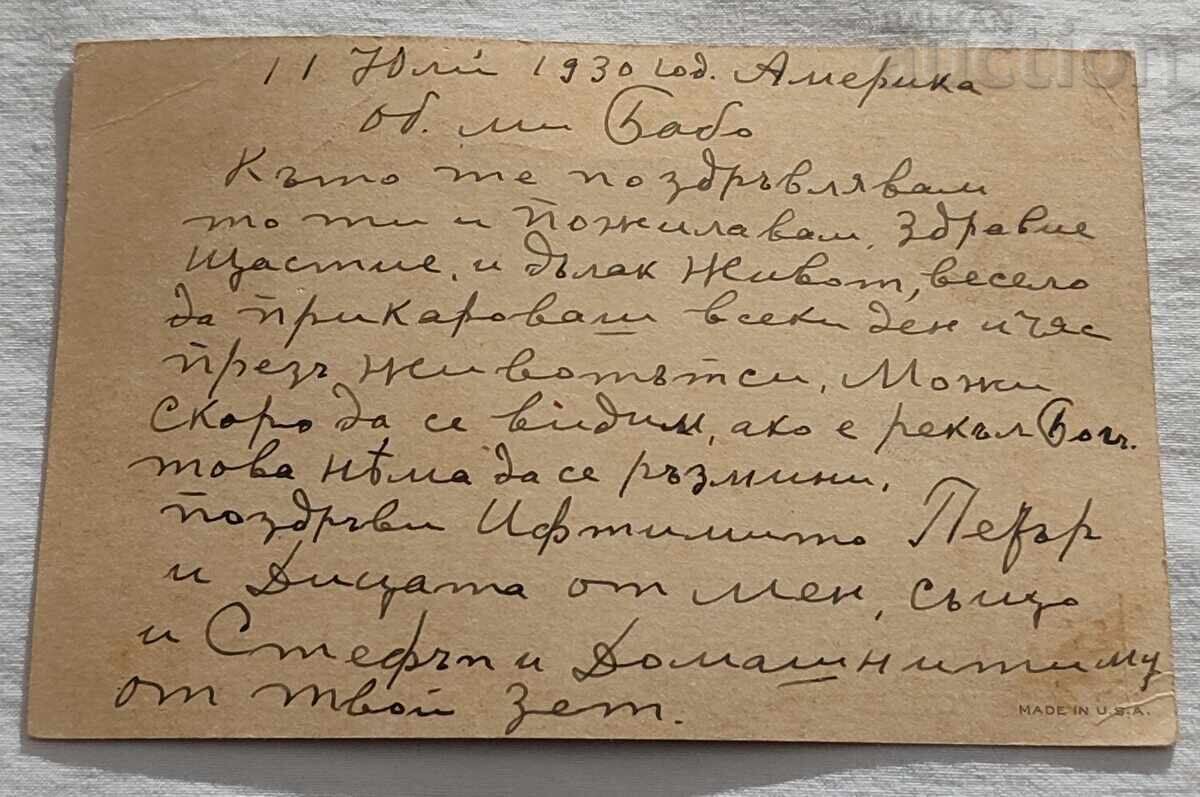 BALKAN
auction
11 Юлий 1930 год. Америка
Об. ми Бабо
Като те поздръвлявам
то ти и пожилавам. Здравие
Щастие, и дълак Живот, весело
да прикароваш всеки ден и час
презъ животътси, Можи
Скоро да се видим, ако е рекъл Богъ.
това нѣма да се ръзмини.
поздръви Ифтимито Петър
и Дицата от мен, също
и Стефън и Домашнитиму
от твой зет.
MADE IN U.S.A.